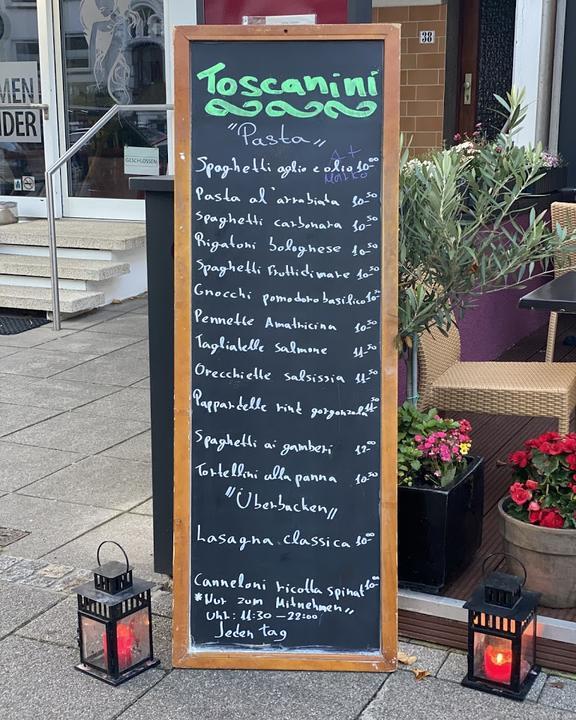 38
MEN
NDER
GESCHLOSSEN
Toscanini
"Pasta"
Spaghetti aglio e olio 10-00
Pasta al'arrabiata 10-50
Spaghetti carbonara 10-50
Rigatoni bolognese 10-50
Spaghetti Fruttidimare 10-50
Gnocchi pomodoro basilico 10-50
Pennette Amatricina 10-50
Tagliatelle Salmone 11-50
Orecchiette salsissia 11-50
Pappardelle rind gorgonzola 11-50
Spaghetti ai gamberi 12-00
Tortellini alla panna 10-50
"Überbacken"
Lasagna classica 10-00
Canneloni ricotta spinat 10-00
*Nur zum Mitnehmen"
Uhr: 11:30 - 22:00
Jeden tag